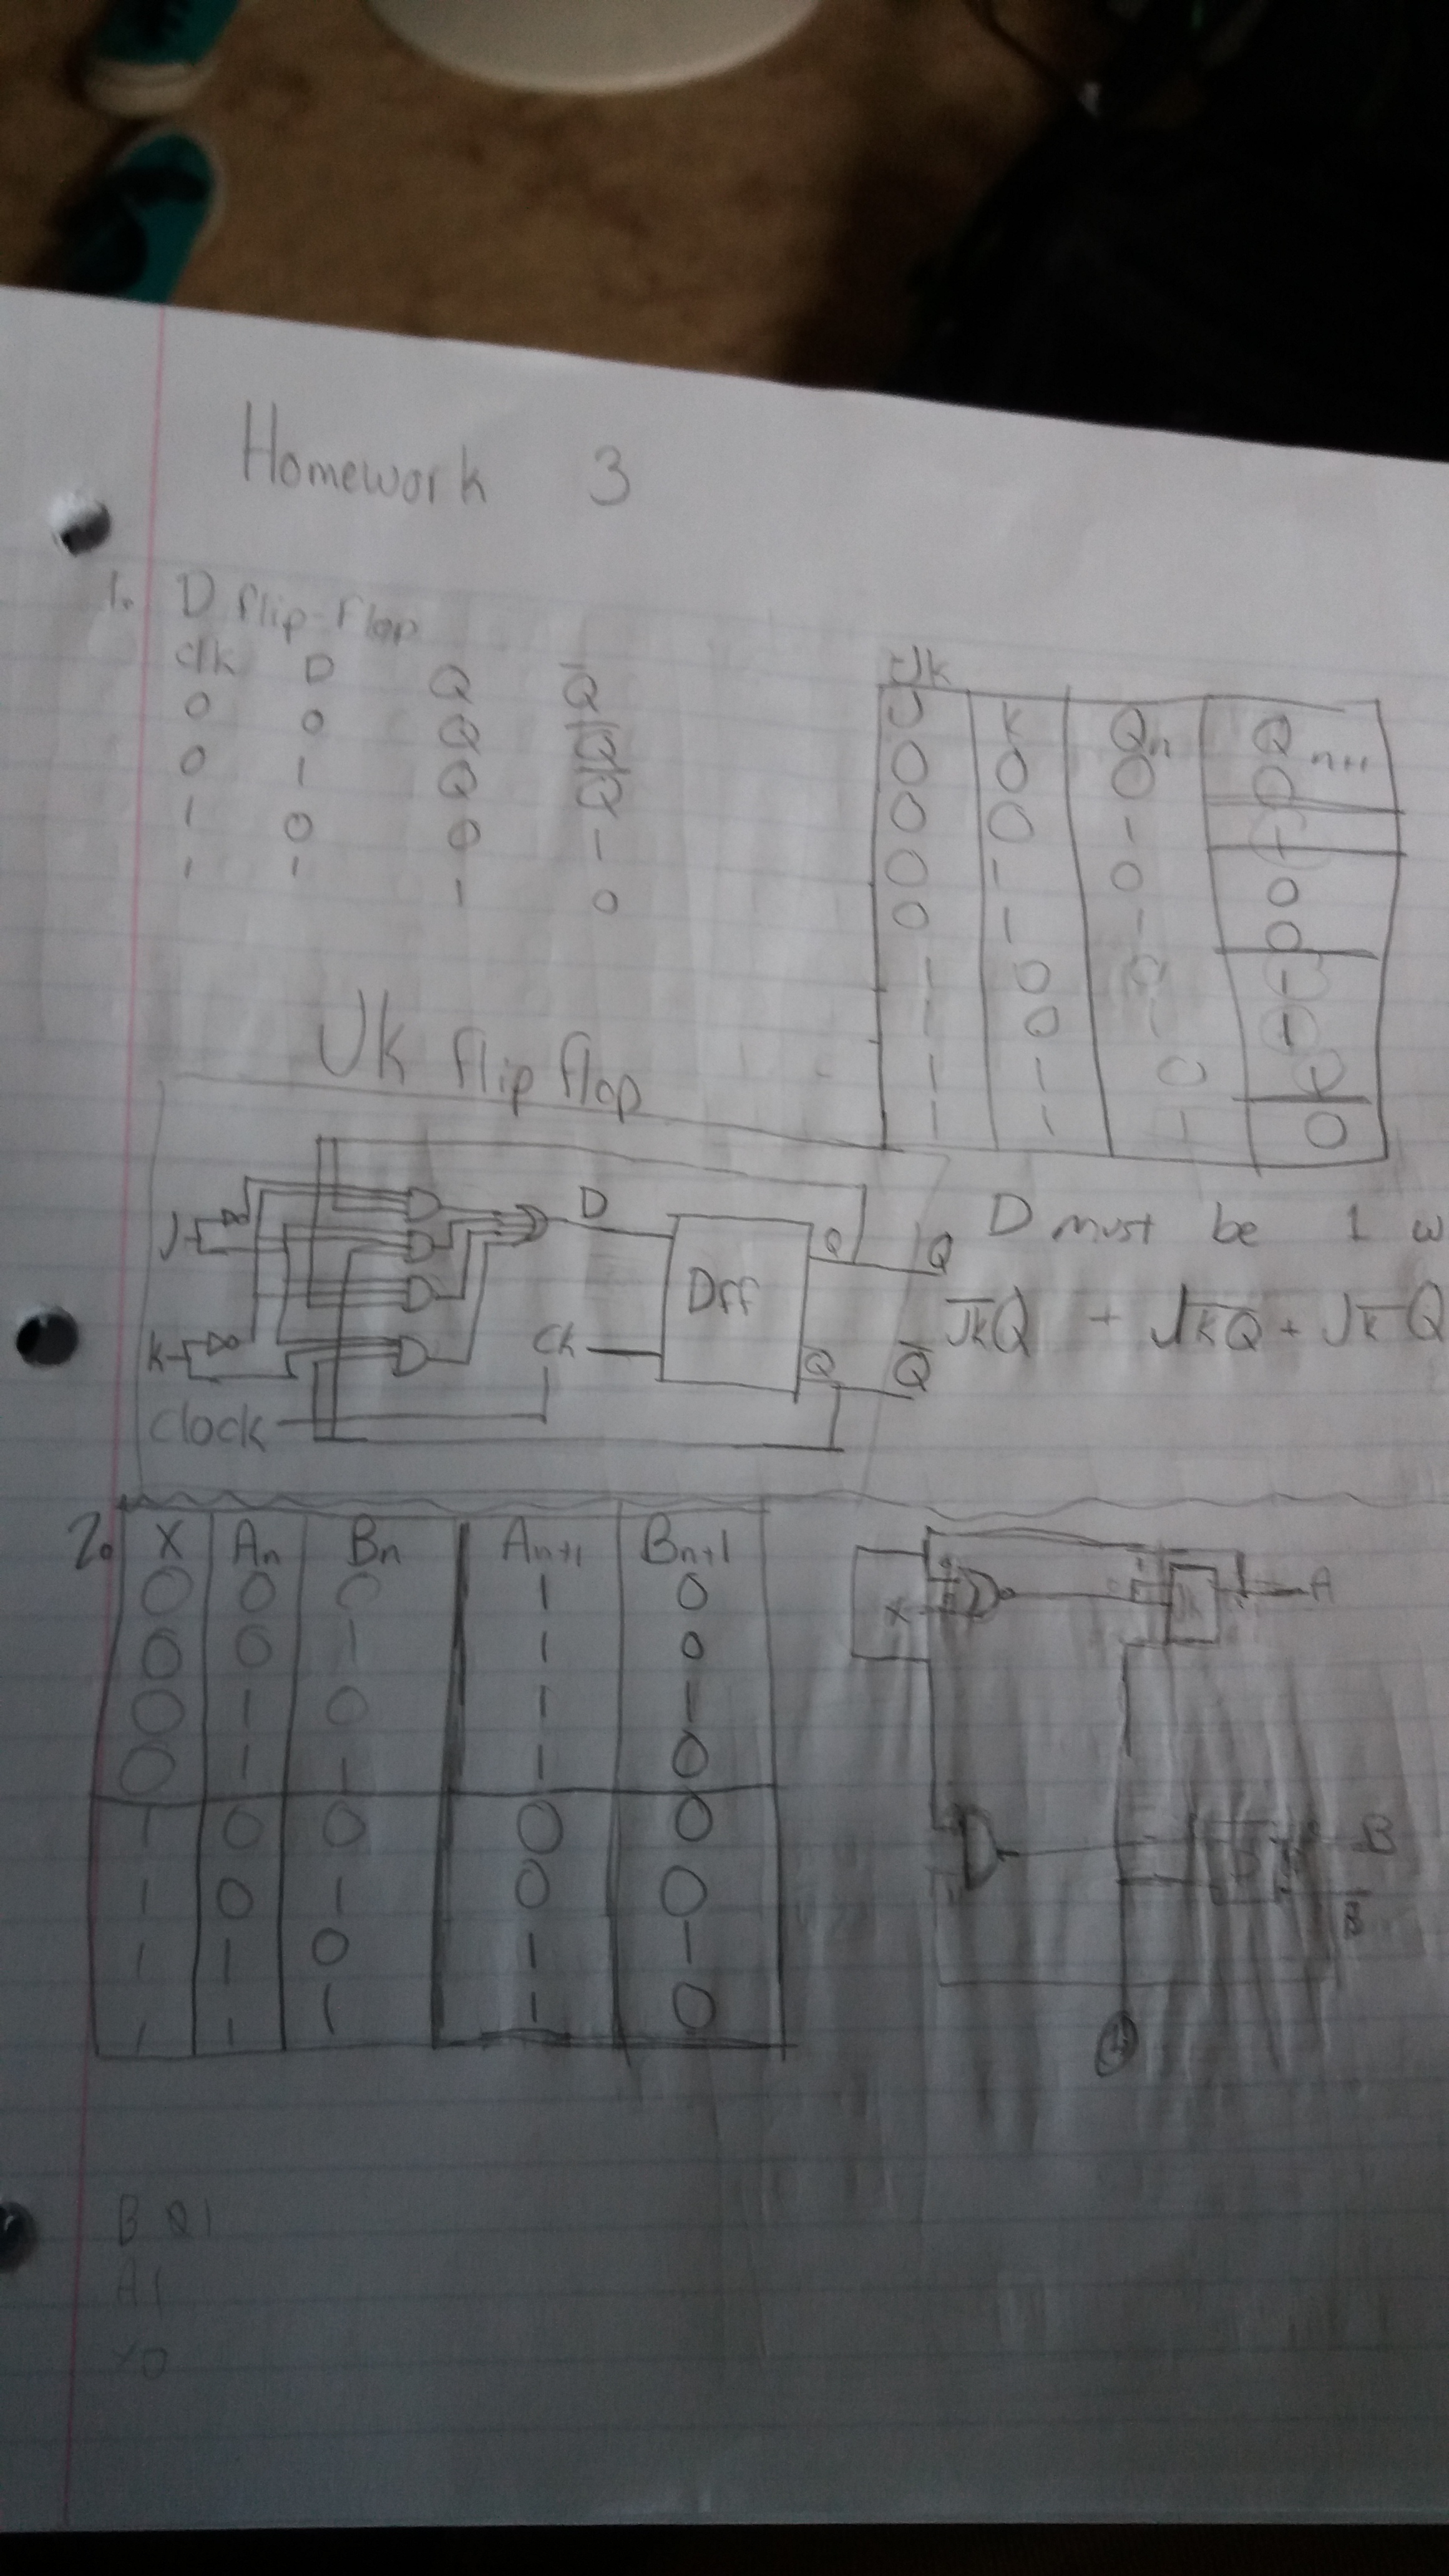 Homework 3
1. D flip-flop
clk D Q Q̅
0 0 Q Q̅
0 1 Q Q̅
1 0 0 1
1 1 1 0
Jk
J K Qn Qn+1
0 0 0 0
0 0 1 1
0 1 0 0
0 1 1 0
1 0 0 1
1 0 1 1
1 1 0 1
1 1 1 0
Jk flip flop
J
k
clock
D
Ck
Dff
Q Q
Q Q̅
D must be 1 w
J̅k̅Q + Jk̅Q̅ + Jk̅Q
2. X An Bn An+1 Bn+1
0 0 0 1 0
0 0 1 1 0
0 1 0 1 1
0 1 1 1 0
1 0 0 0 0
1 0 1 0 0
1 1 0 1 1
1 1 1 1 0
X
A
B
B̅